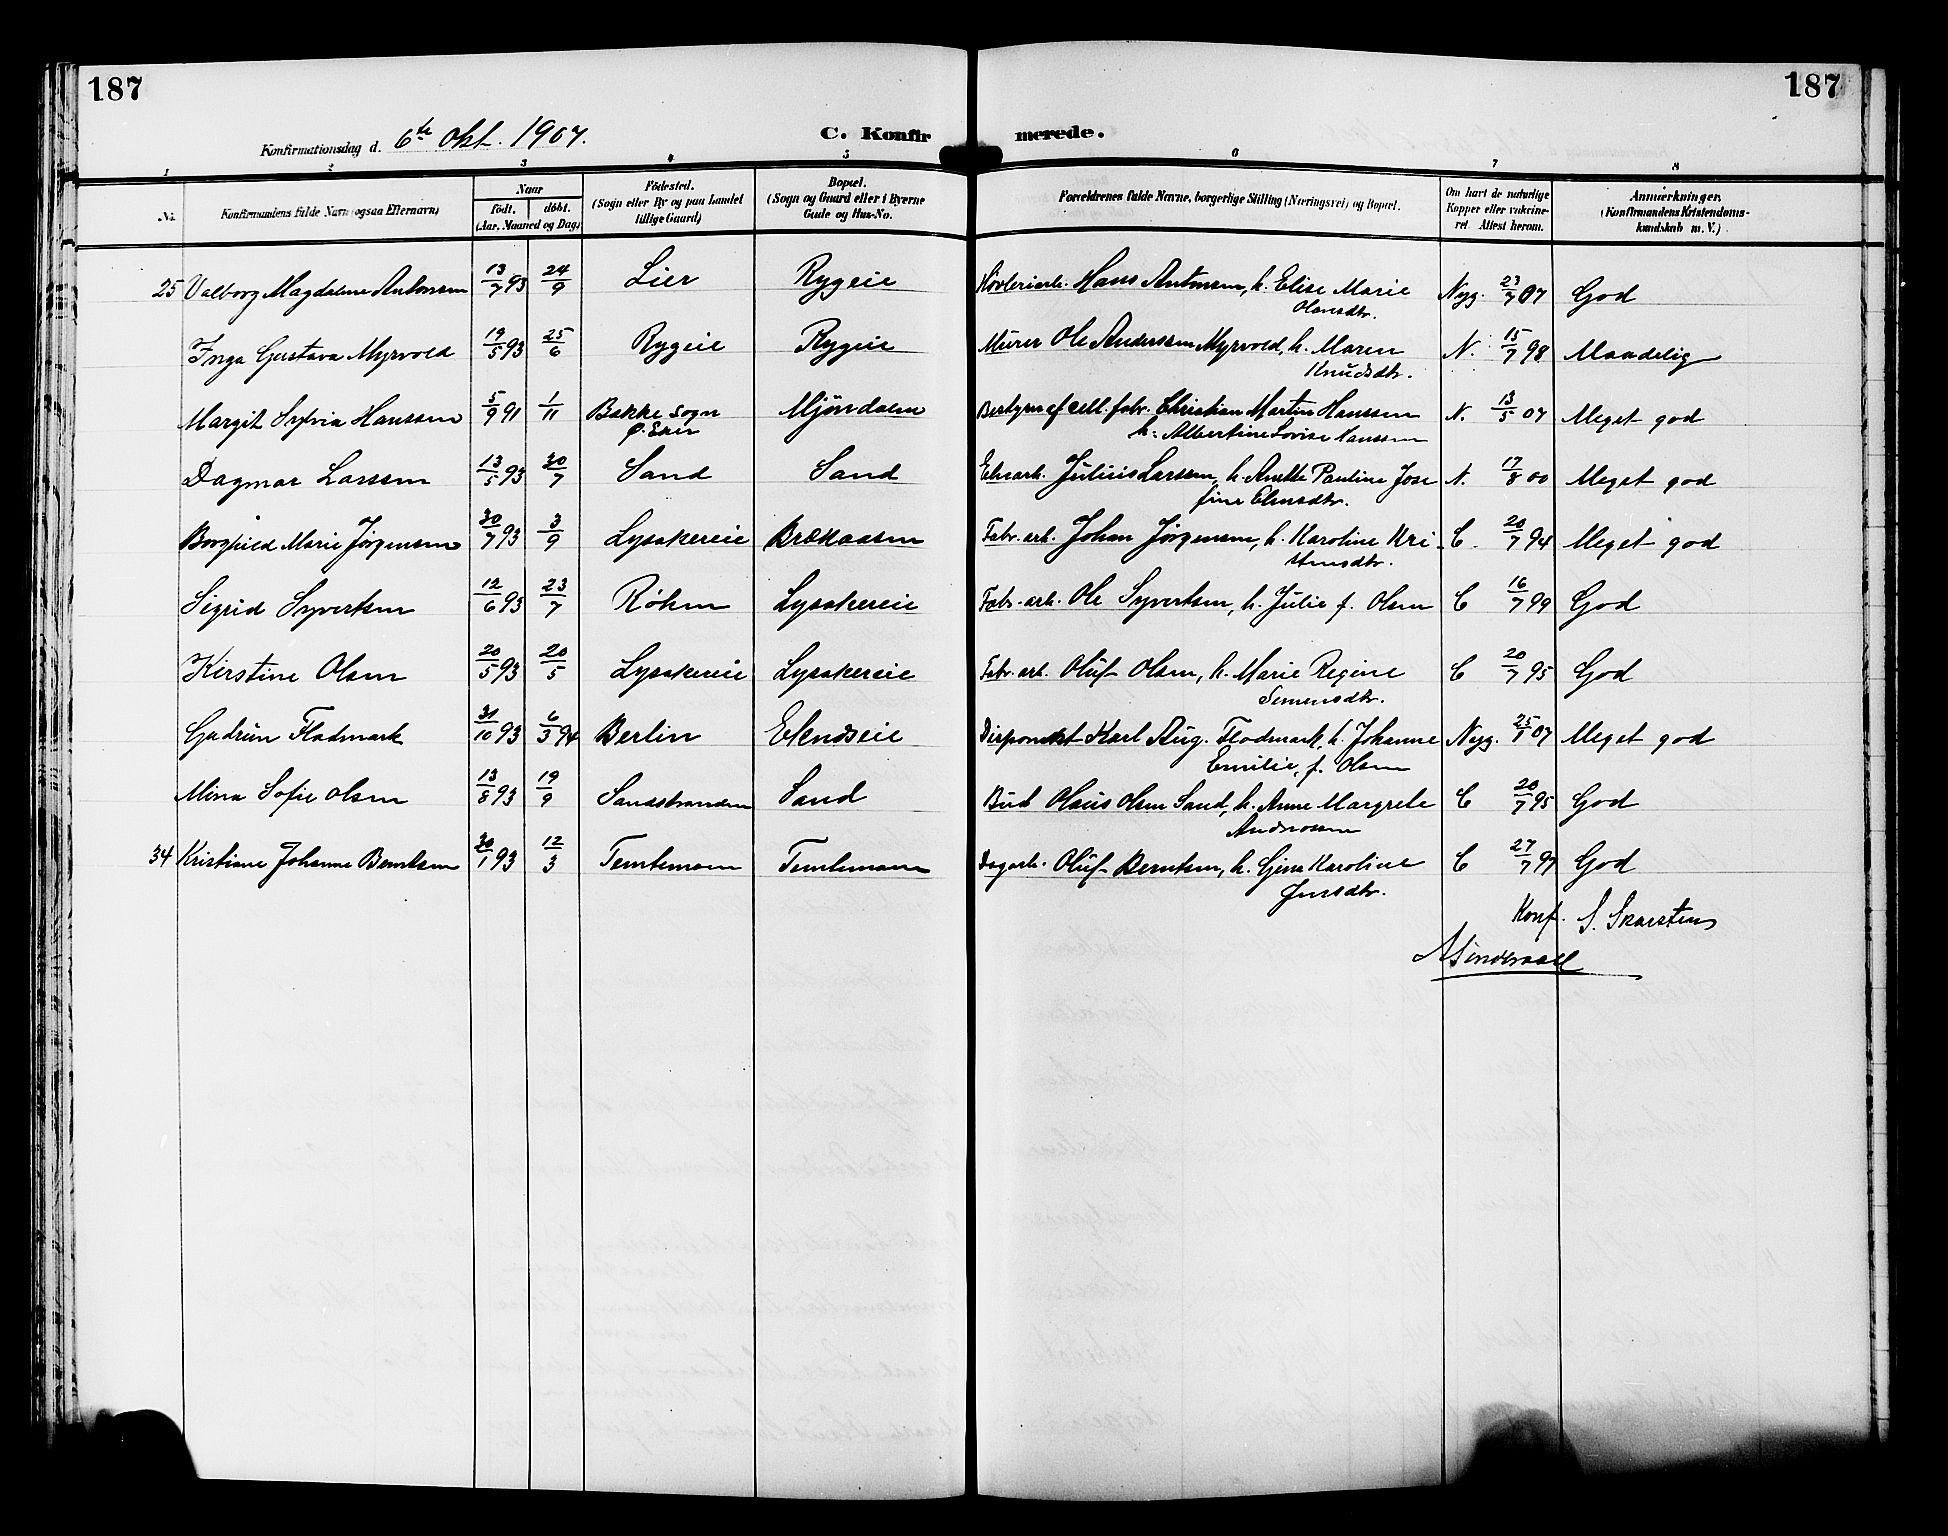 187
187
Konfirmationsdag d. 6te Okt. 1907.
C. Konfirmerede.
1 2 3 4 5 6 7 8
No. Konfirmandens fulde Navn (ogsaa Efternavn) Naar født. døbt. (Aar, Maaned og Dag) Fødested. (Sogn eller By og paa Landet tillige Gaard) Bopæl. (Sogn og Gaard eller i Byerne Gade og Hus-No. Forældrenes fulde Navne, borgerlige Stilling (Næringsvei) og Bopæl. Om havt de naturlige Kopper eller vakcineret Attest herom. Anmærkninger. (Konfirmandens Kristendomskundskab m. V.)
25 Valborg Magdalene Antonsen 13/7 93 24/9 Lier Rygeie Høvleriarb. Hans Antonsen, h. Elise Marie Nyg. 23/7 07 God
Olausdtr.
Inga Gustava Myrvold 19/5 93 25/6 Rygeie Rygeie Murer Ole Anderssen Myrvold, h. Maren N. 15/7 98 Maadelig
Knudsdtr.
Margit Sylvia Hanssen 5/9 91 1/11 Bakke sogn Mjøndalen Bestyrer af cell. fabr. Christian Martin Hanssen N. 13/5 07 Meget god
Ø. Eker h. Albertine Lovise Hanssen
Dagmar Larssen 13/5 93 30/7 Sand Sand Julius Larssen, h. Anette Pauline Jose N. 17/8 00 Meget god
fine
Borghild Marie Jørgensen 30/7 93 3/9 Lysakereie Brækaasen Fabr. arb. Johan Jørgensen, h. Karoline Kri- C. 20/7 94 Meget god
stensdtr.
Sigrid Syvertsen 12/6 93 23/7 Røken Lysakereie Fabr. arb. Ole Syvertsen, h. Julie f. Olsen C 16/7 99 God
Kirstine Olsen 20/5 93 20/5 Lysakereie Lysakereie Fabr. arb. Oluf Olsen, h. Marie Regine C 20/7 95 God
Simensdtr.
Gudrun Flodmark 31/10 93 6/3 94 Berlin Eknæseie Disponent Karl Aug. Flodmark, h. Johanne Nyg. 25/1 07 Meget god
Emilie, f. Olsen
Mina Sofie Olsen 13/8 93 19/9 Sandsstranden Sand Bud Olaus Olsen Sand, h. Anne Margrete C 20/7 95 God
34 Kristiane Johanne Berntsen 30/1 93 12/3 Temtemoen Temtemoen Dagarb. Oluf Berntsen, h. Gina Karoline C 27/7 97 God
Jensdtr.
Konf. S. Skarsteins